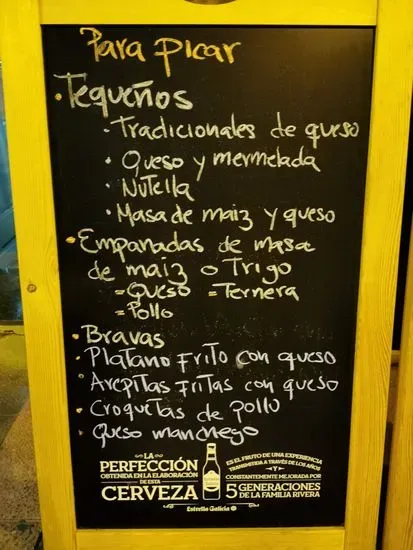 Para picar
• Tequeños
• Tradicionales de queso
• Queso y mermelada
• Nutella
• Masa de maiz y queso
• Empanadas de masa
de maiz o Trigo
= Queso = Ternera
= Pollo
• Bravas
• Platano frito con queso
• Arepitas fritas con queso
• Croquetas de pollo
• Queso manchego
LA
PERFECCIÓN
OBTENIDA EN LA ELABORACIÓN
DE ESTA
CERVEZA
ES EL FRUTO DE UNA EXPERIENCIA
TRANSMITIDA A TRAVÉS DE LOS AÑOS
Y
CONSTANTEMENTE MEJORADA POR
5 GENERACIONES
DE LA FAMILIA RIVERA
Estrella Galicia